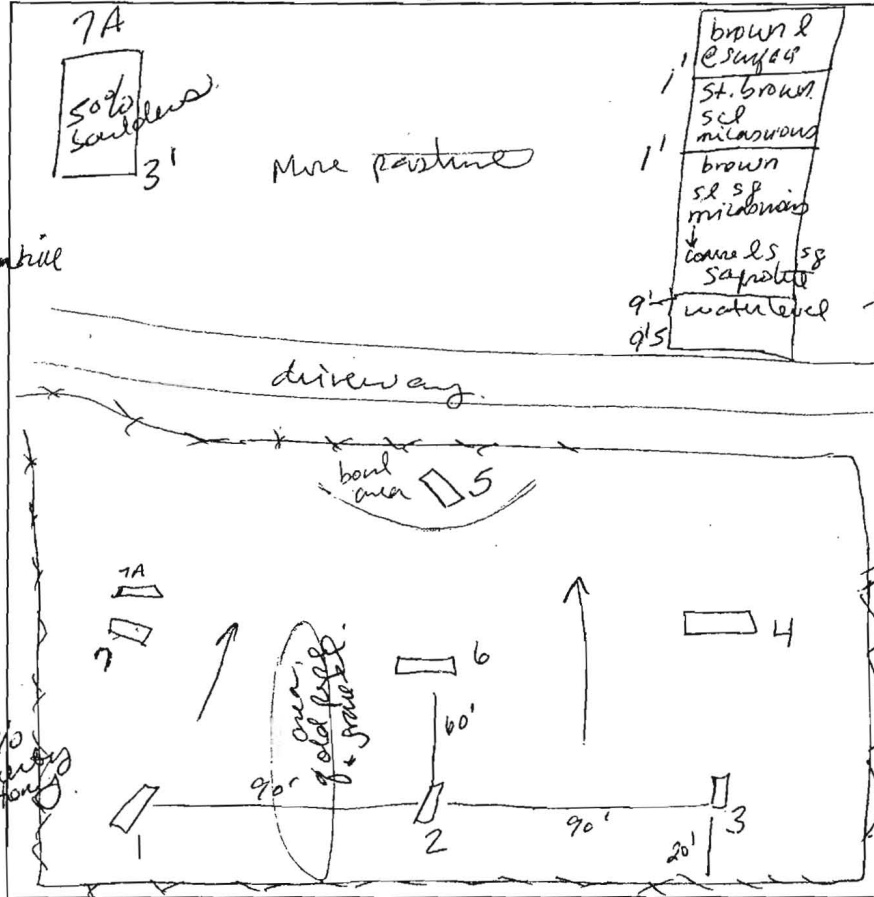 7A
50%
boulders
3'
More pasture
brown l
@ surface
1'
st. brown
scl
micaceous
1'
brown
sl sg
micaceous
coarse ls sg
saprolite
9'
water level
9'5
driveway
bowl
area
5
7A
7
6
4
60'
area
of old
& gravel
90'
90'
1
2
3
20'